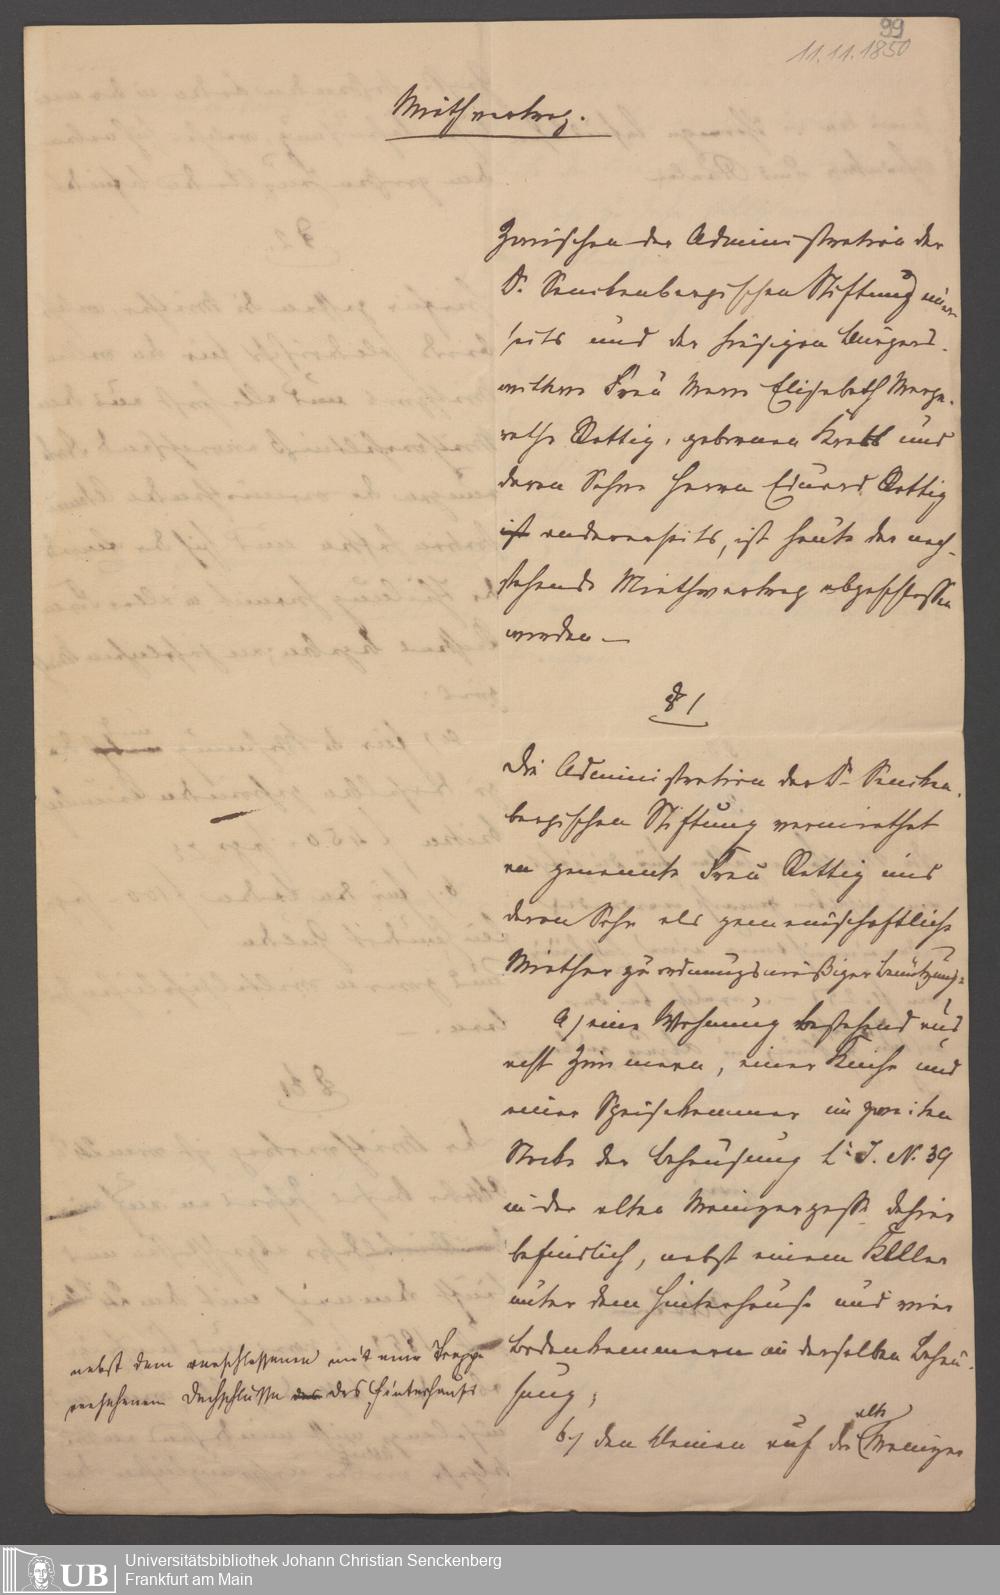 99
11.11.1850
Miethvertrag.
Zwischen der Administration der
Dr. Senckenbergischen Stiftung einer-
seits und der hiesigen Bürgers-
wittwe Frau Marie Elisabeth Marga-
rethe Rettig, geborenen Krebs und
deren Sohne Herrn Eduard Rettig
ist andererseits, ist heute der nach-
stehende Miethvertrag abgeschlossen
worden —
§ 1
Die Administration der Dr. Sencken-
bergischen Stiftung vermiethet
an genannte Frau Rettig und
deren Sohn als gemeinschaftliche
Miether zu ordnungsmäßiger Benützung:
a) eine Wohnung bestehend aus
acht Zimmern, einer Küche und
einer Speisekammer im zweiten
Stocke der Behausung Lit. J. N. 39
in der alten Mainzergasse dahier
befindlich, nebst einem Keller
unter dem Hinterhause und vier
Bodenkammern in derselben Behau-
sung;
nebst dem verschlossenen mit einer Treppe
versehenen Dachschlusse des des Hinterhauses
b) den kleinen auf der alte Mainzer
Universitätsbibliothek Johann Christian Senckenberg
Frankfurt am Main
UB